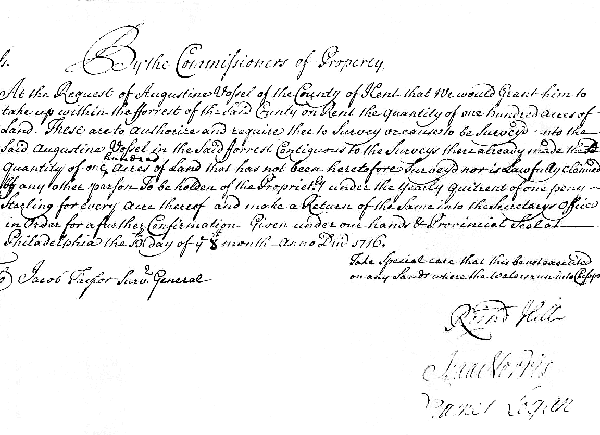 By the Commissioners of Property
At the Request of Augustine Vosel of the County of Kent that We would Grant him to
take up within the forrest of the Said County on Rent the Quantity of one hundred acres of
Land. These are to Authorize and require thee to Survey or cause to be Survey'd unto the
Said Augustine Vosel in the Said forrest Contiguous to the Surveys there already made the
Quantity of one hundred Acres of Land that has not been heretofore Survey'd nor is Lawfully Claimed
by any other person To be holden of the Propriet'y under the Yearly Quitrent of one peny
Sterling for every Acre thereof and make a Return of the Same into the Secretarys Office
in Order for a further Confirmation Given under our hands & Provincial Seal at
Philadelphia the day of month Anno Dni 1716.
Take Special care that this be not executed
on any Lands where the Waters run into
To Jacob Taylor Surv. General
Rich'd Hill
Isaac Norris
James Logan